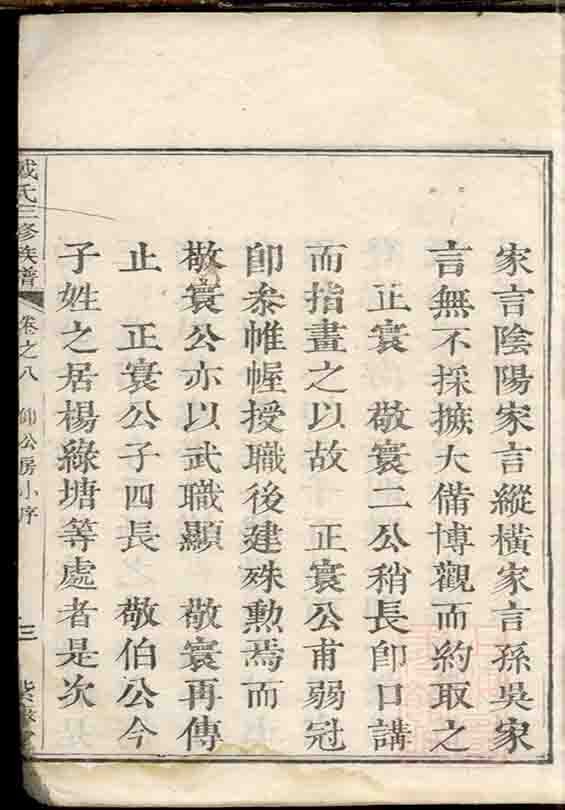 家言陰陽家言縱橫家言孫吳家
言無不採摭大備博觀而約取之
正寰　敬寰二公稍長卽口講
而指畫之以故　正寰公甫弱冠
卽叅帷幄授職後建殊勳焉而
敬寰公亦以武職顯　敬寰再傳
止　正寰公子四長　敬伯公今
子姓之居楊綠塘等處者是次
戴氏三修族譜　卷之八　卸公房小序　三